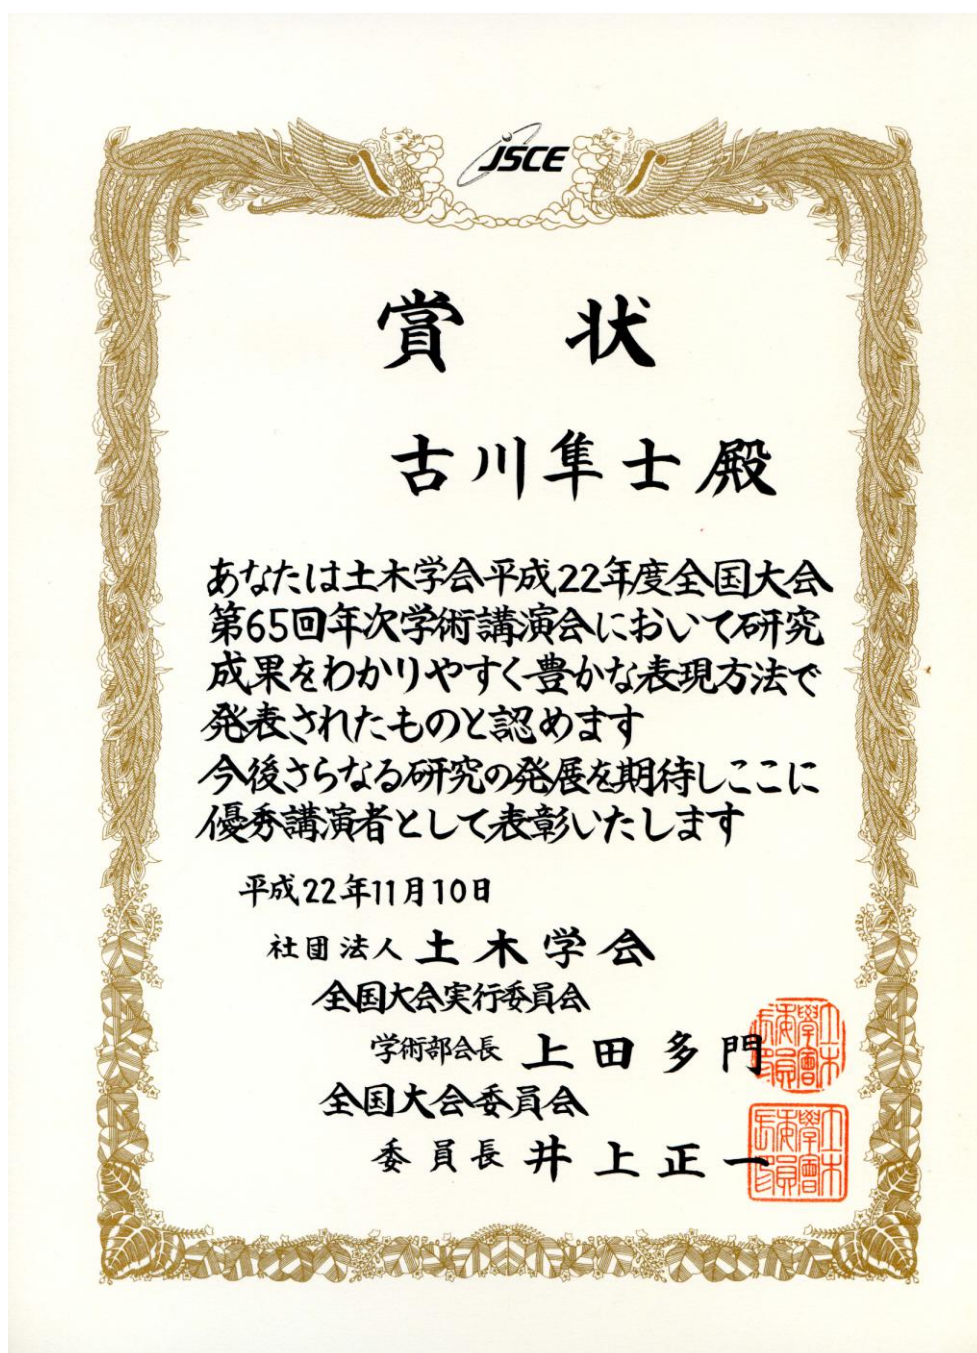 JSCE
賞状
古川隼士殿
あなたは土木学会平成22年度全国大会
第65回年次学術講演会において研究
成果をわかりやすく豊かな表現方法で
発表されたものと認めます
今後さらなる研究の発展を期待しここに
優秀講演者として表彰いたします
平成22年11月10日
社団法人土木学会
全国大会実行委員会
学術部会長 上田多門
全国大会委員会
委員長 井上正一